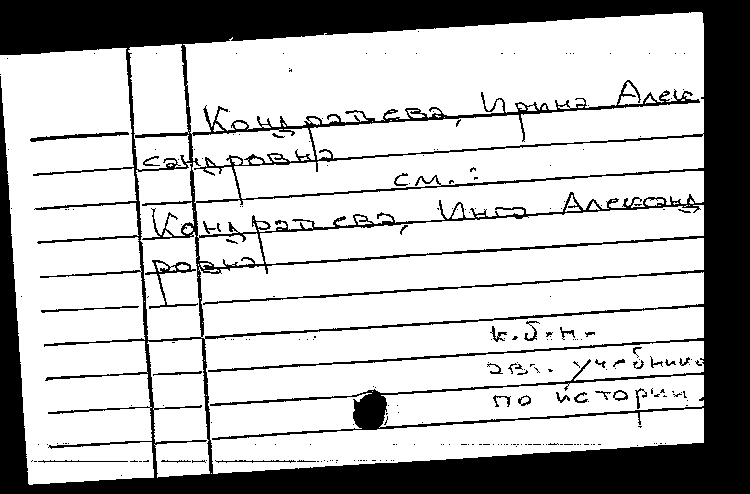 Кондратьева, Ирина Алек-
сандровна
см.:
Кондратьева, Инга Александ
ровна
к.б.н.
авт. учебника
по истории.